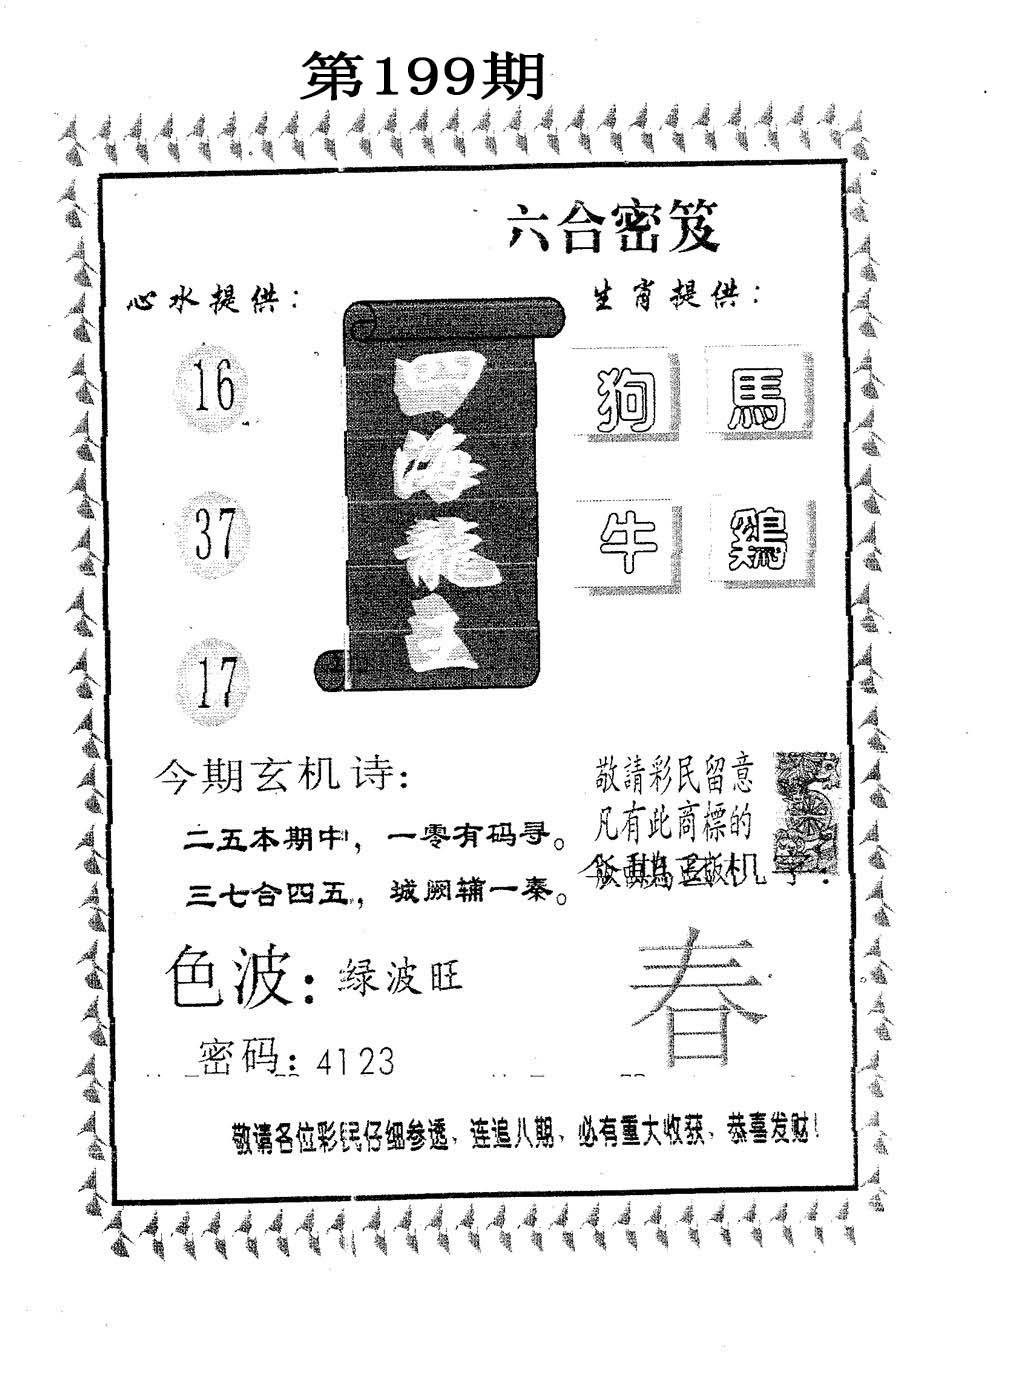 第199期
六合密笈
心水提供：
生肖提供：
16
37
17
四海龍王
狗
馬
牛
鷄
今期玄机诗：
二五本期中，一零有码寻。
三七合四五，城阙辅一秦。
敬請彩民留意
凡有此商標的
机字：
春
色波：绿波旺
密码：4123
敬请各位彩民仔细参透、连追八期、必有重大收获、恭喜发财！